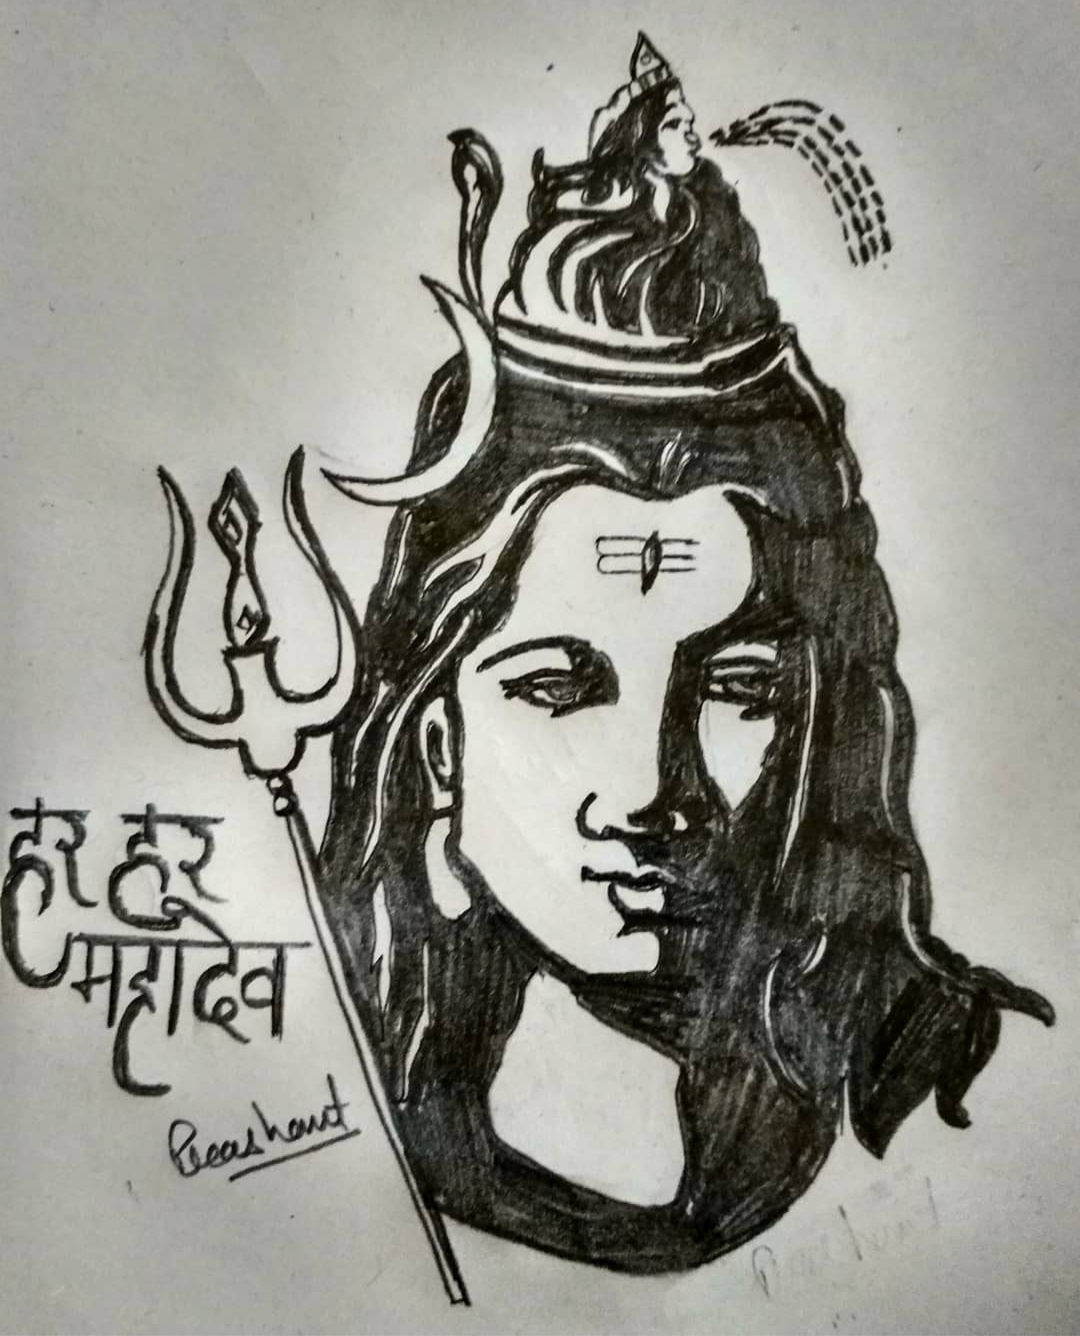 हर हर
महादेव
Prashant
Prashant